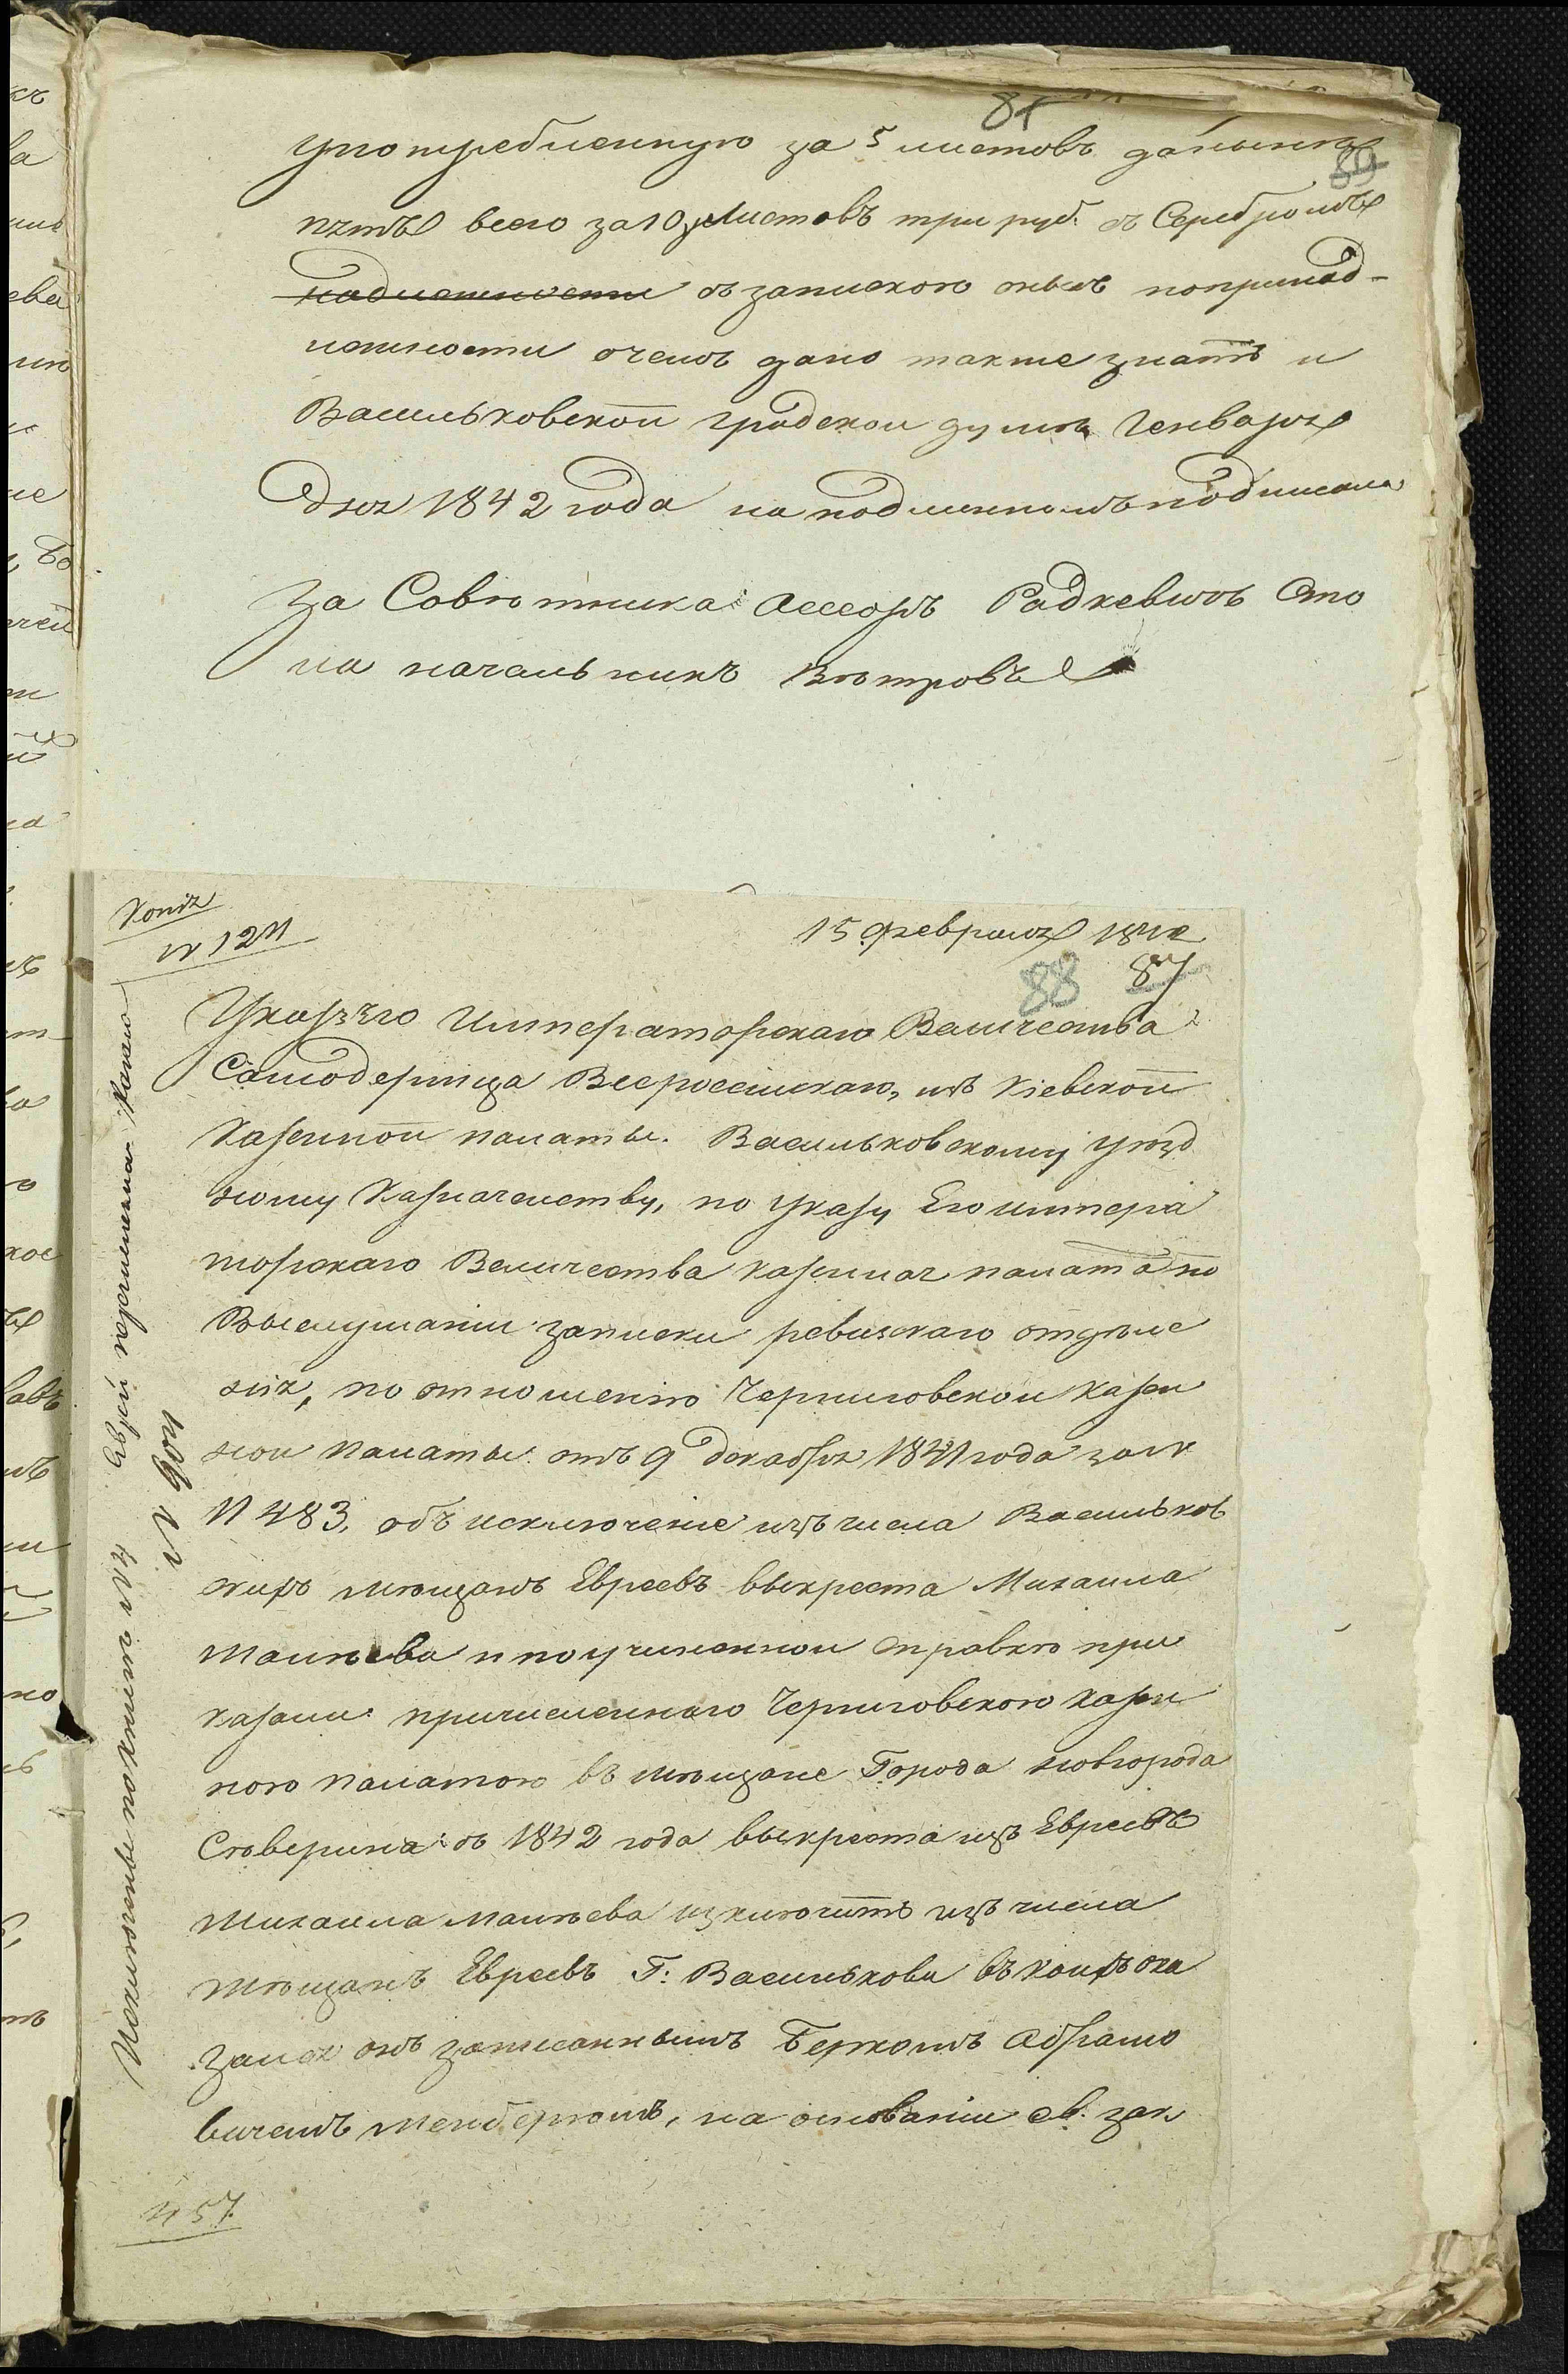 87
89
употребленную за 5 листовъ
всего за 10 листовъ три руб. съ Серебромъ
надлежности съ запискою оныхъ по принад-
лежности о чемъ дано также знать и
Васильковской градской думѣ Генваря
дня 1842 года на подлинномъ подписали
За Совѣтника Асесоръ Радкевичъ Сто
ла начальникъ Вѣтровъ
Копія
N 1211
15 февраля 1842
88 87
Указъ Его Императорскаго Величества
Самодержца Всероссійскаго, изъ Кіевской
Казенной палаты. Васильковскому уѣзд
ному Казначейству, по указу Его Импера
торскаго Величества Казенная палата по
Выслушаніи записки ревизскаго отдѣле
нія, по отношенію Черниговской Казен
ной Палаты отъ 9 декабря 1841 года за N
11483, объ исключеніе изъ числа Васильков
скихъ мѣщанъ Евреевъ выкреста Михаила
Маинева и по учиненной справкѣ при
казали: причисленнаго Черниговскою Казен
ною Палатою въ мѣщане Города Новгорода
Сѣверска съ 1842 года выкреста изъ Евреевъ
Михаила Маинева изключить изъ числа
Мѣщанъ Евреевъ Г: Василькова въ коихъ ока
зался онъ записаннымъ Беркомъ Абрамо
вичемъ на основаніи св. зак
457
Исключены по книгѣ N 4 Еврей
N 901